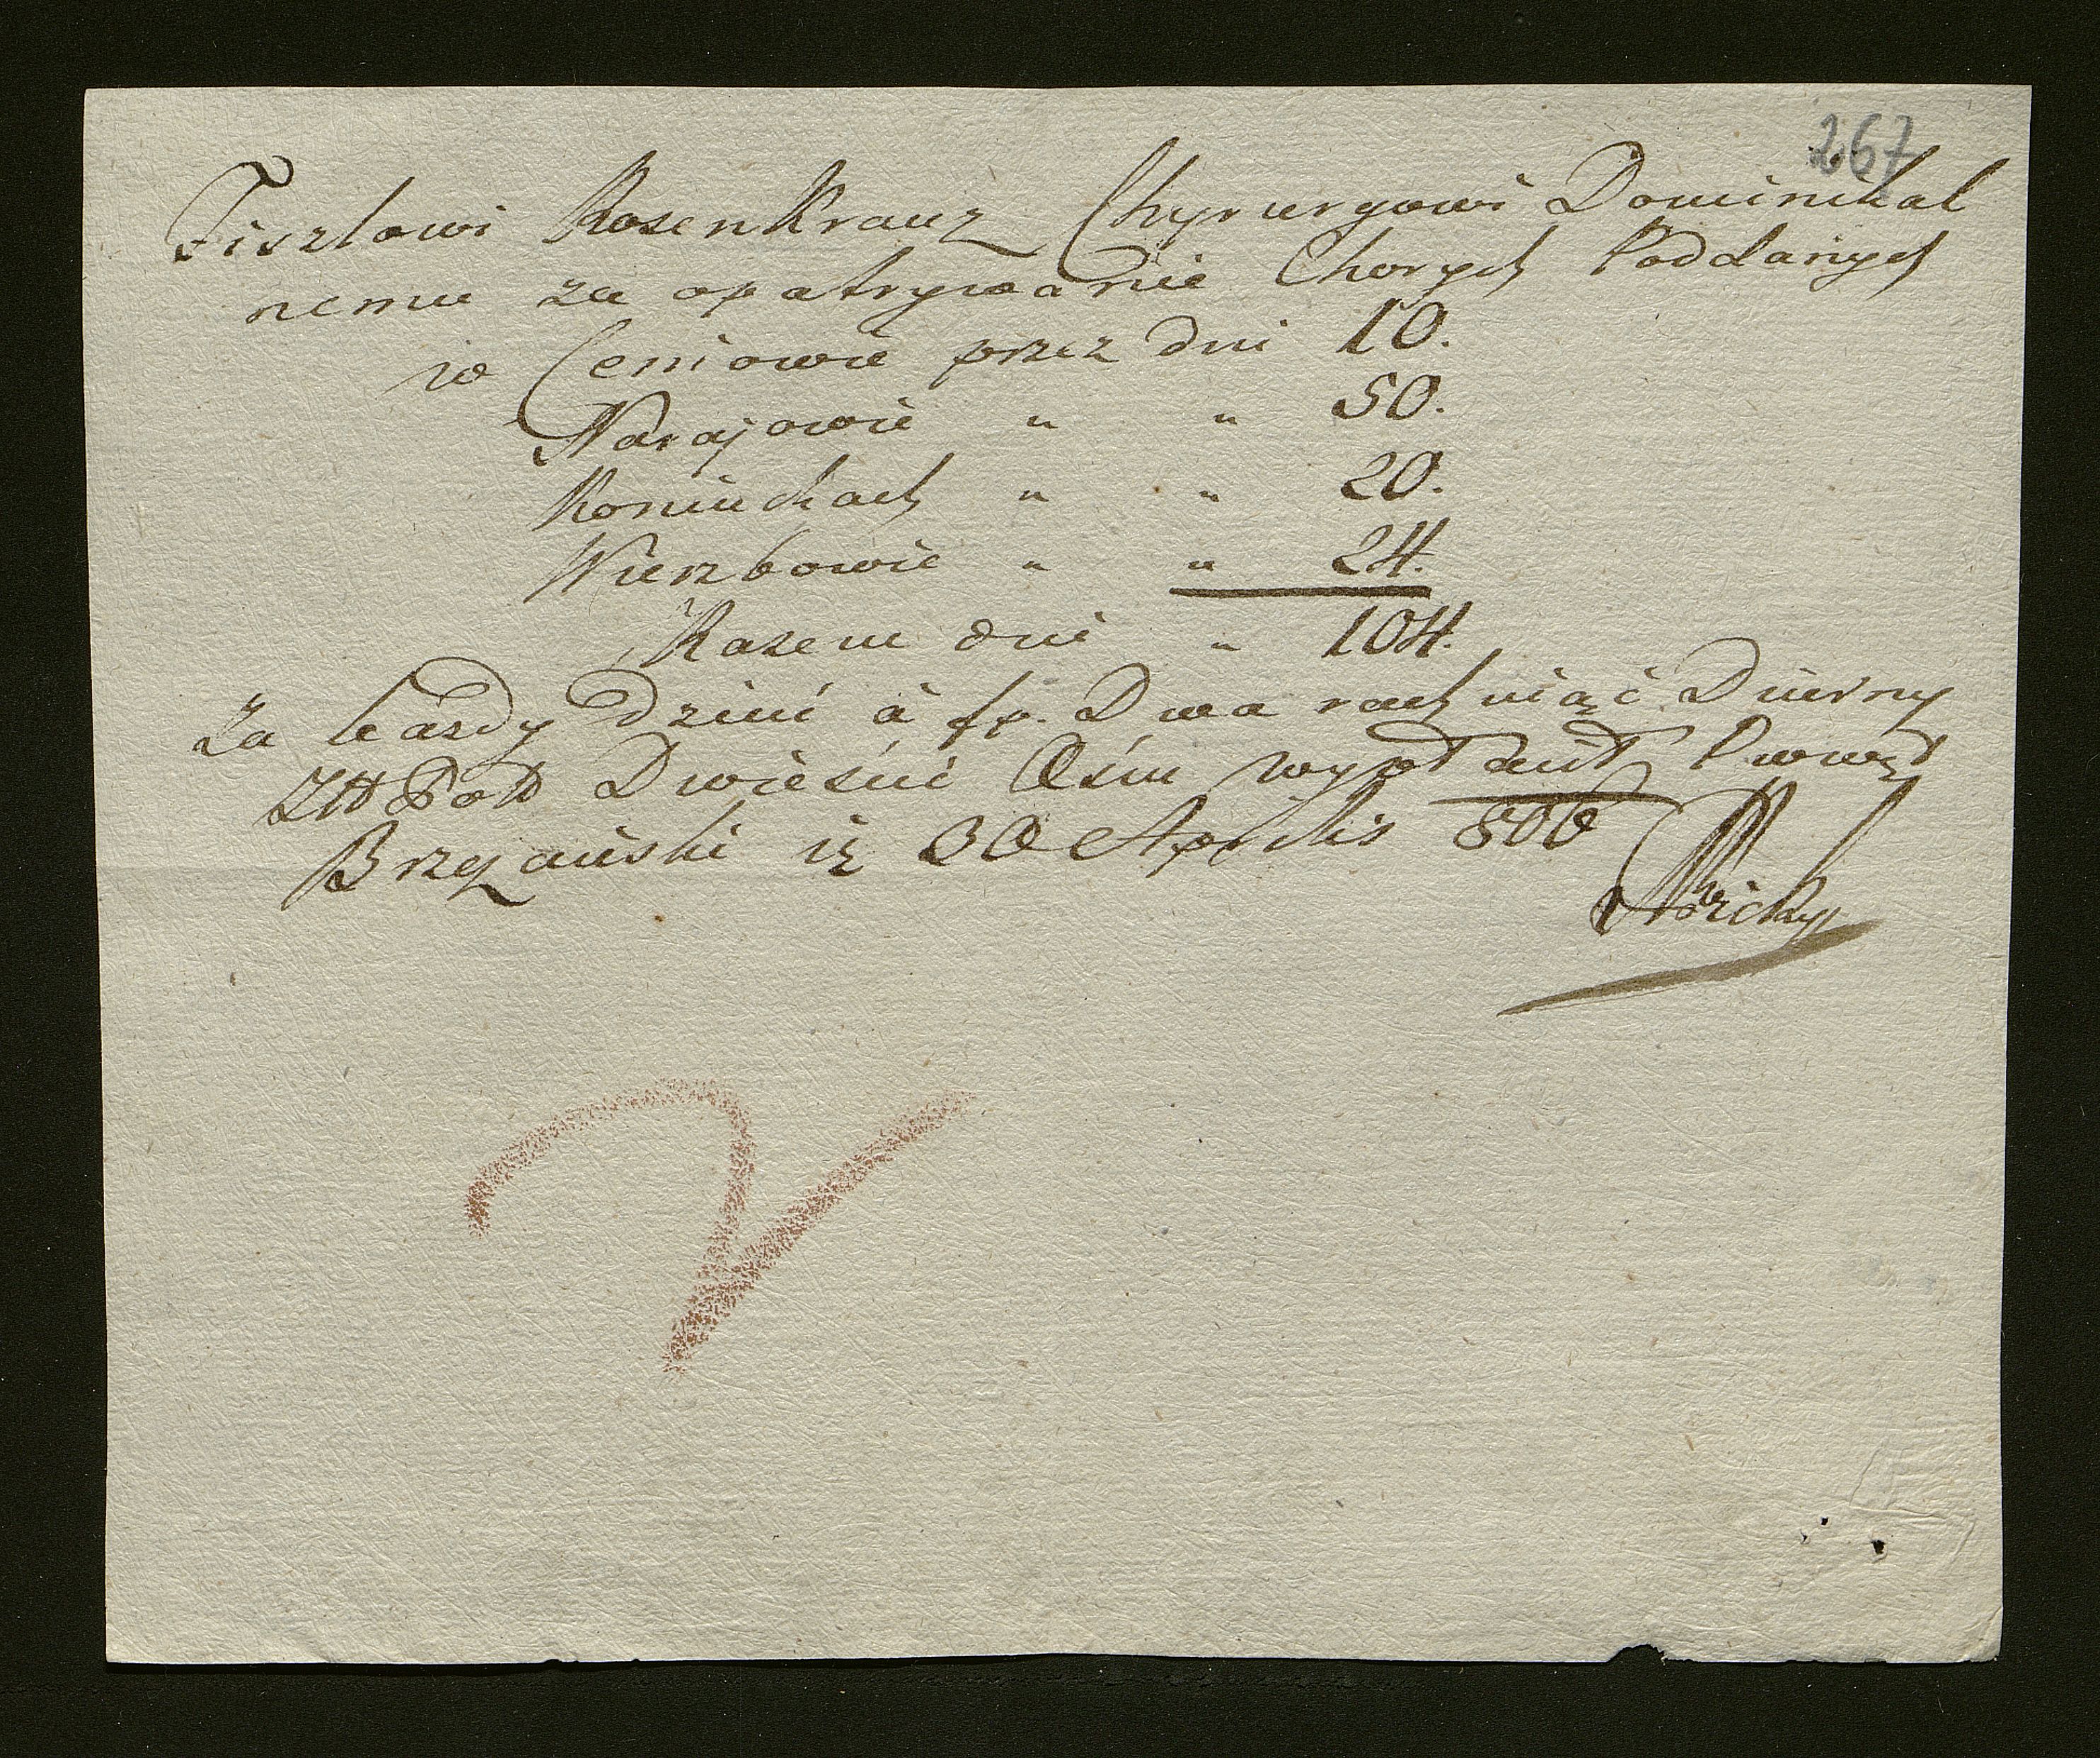 267
Fiszlowi Rosenkranz Chyrurgowi Dominikal
nemu za opatrywanie Chorych Poddanych
w Ceniowie przez dni 10.
Narajowie " " 50.
Koniuchach " " 20.
Wierzbowie " " 24.
Razem dni " 104.
Za każdy dzień à fp. Dwa rachuiąc Diurny
Dwieście Ośm wypłacić Prowęt
Brzeżański iz 30 Aprilis 806